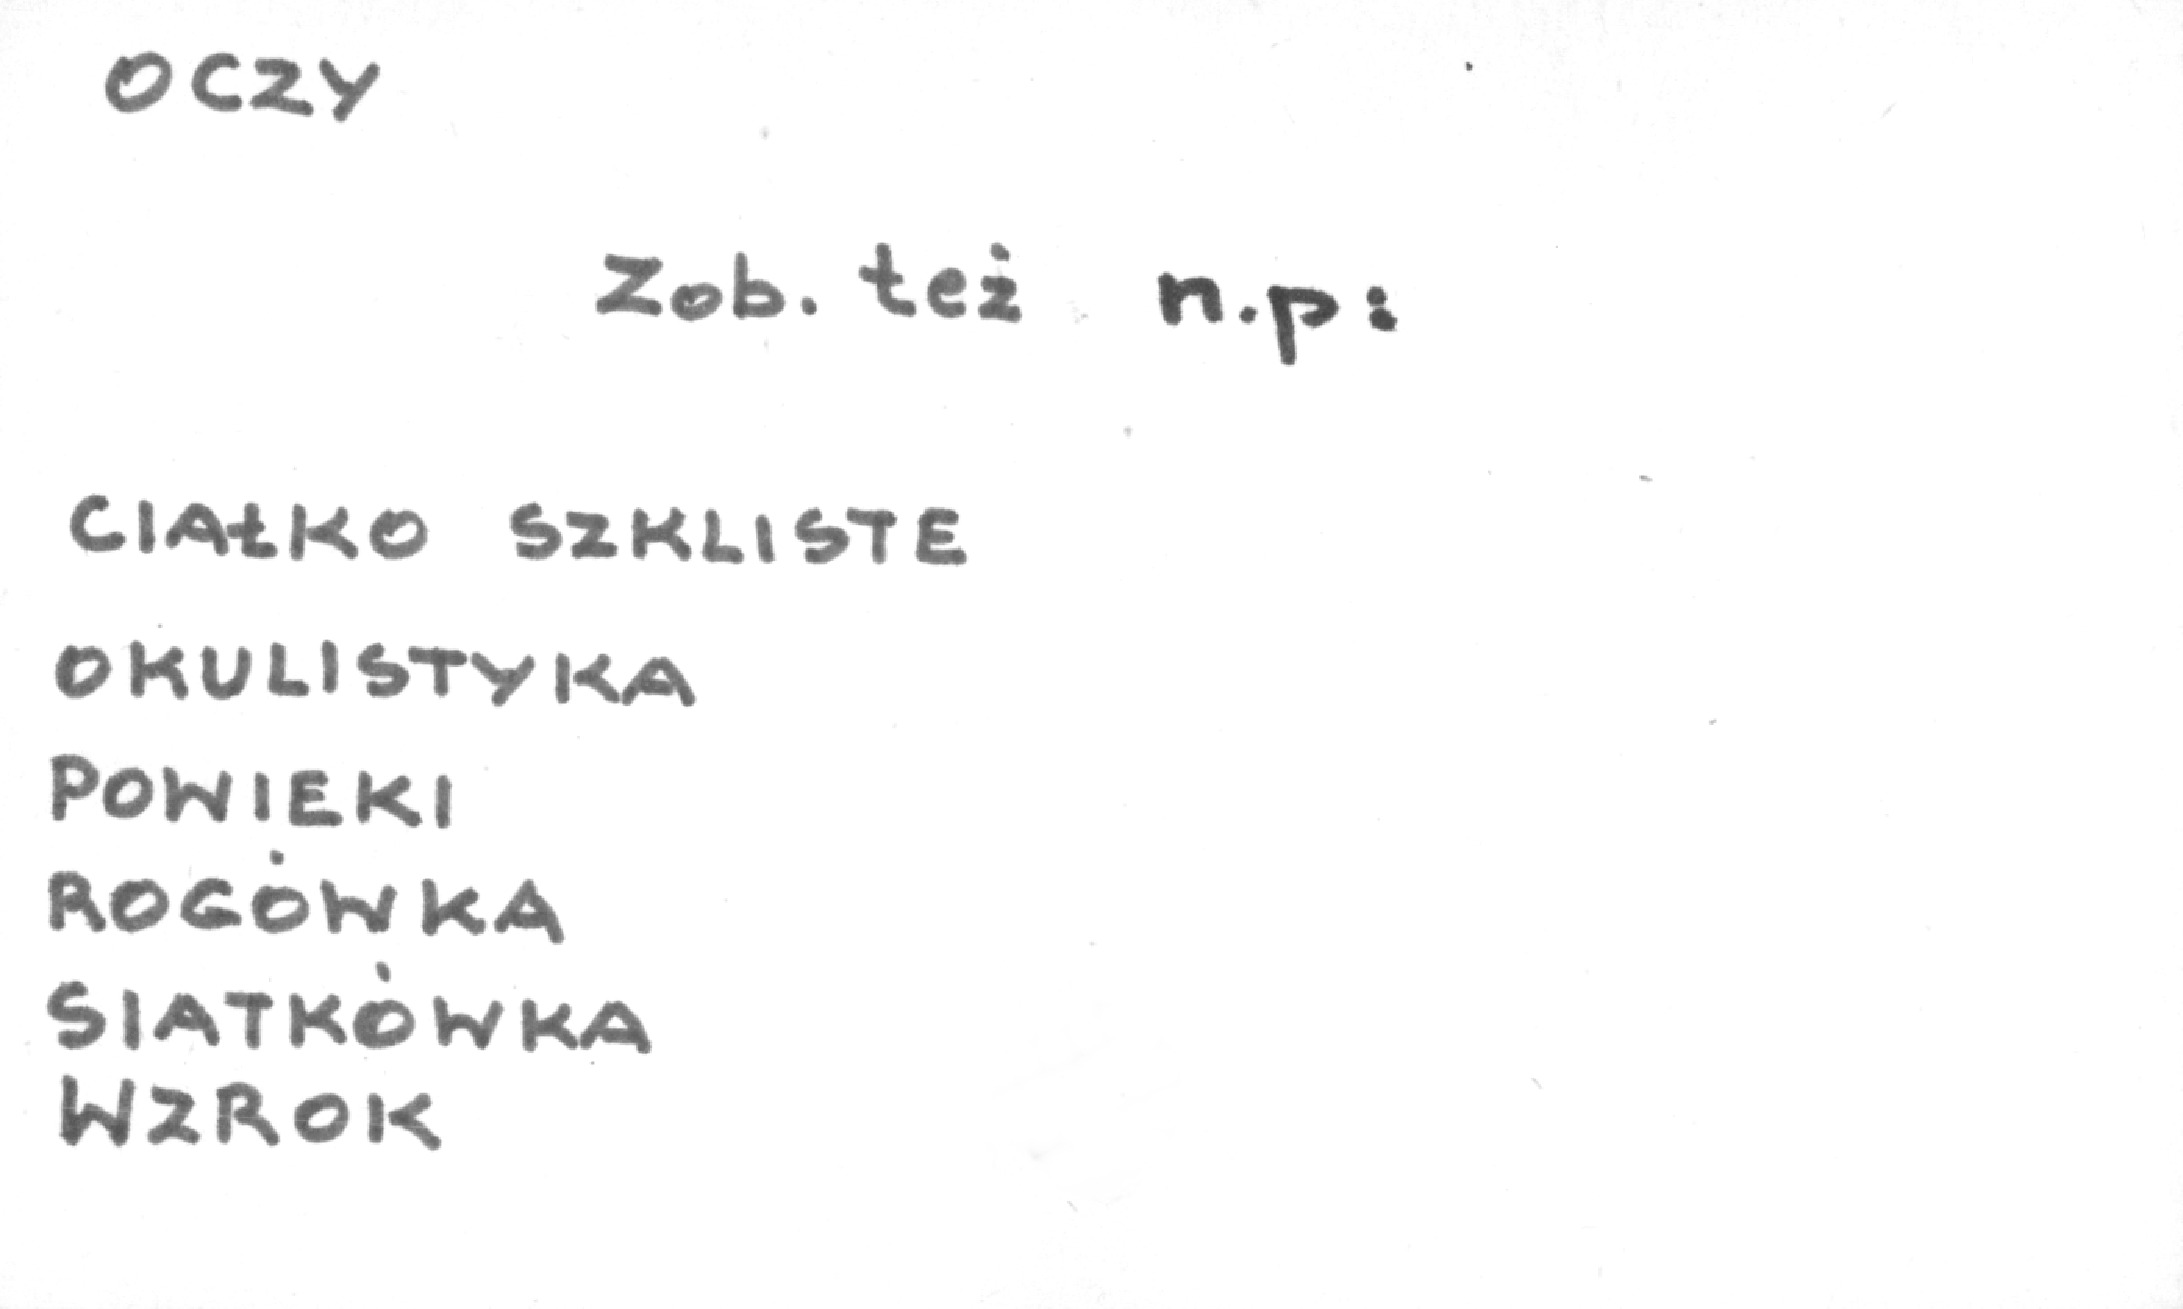 OCZY
Zob. też n.p:
CIAŁKO SZKLISTE
OKULISTYKA
POWIEKI
ROGÓWKA
SIATKÓWKA
WZROK